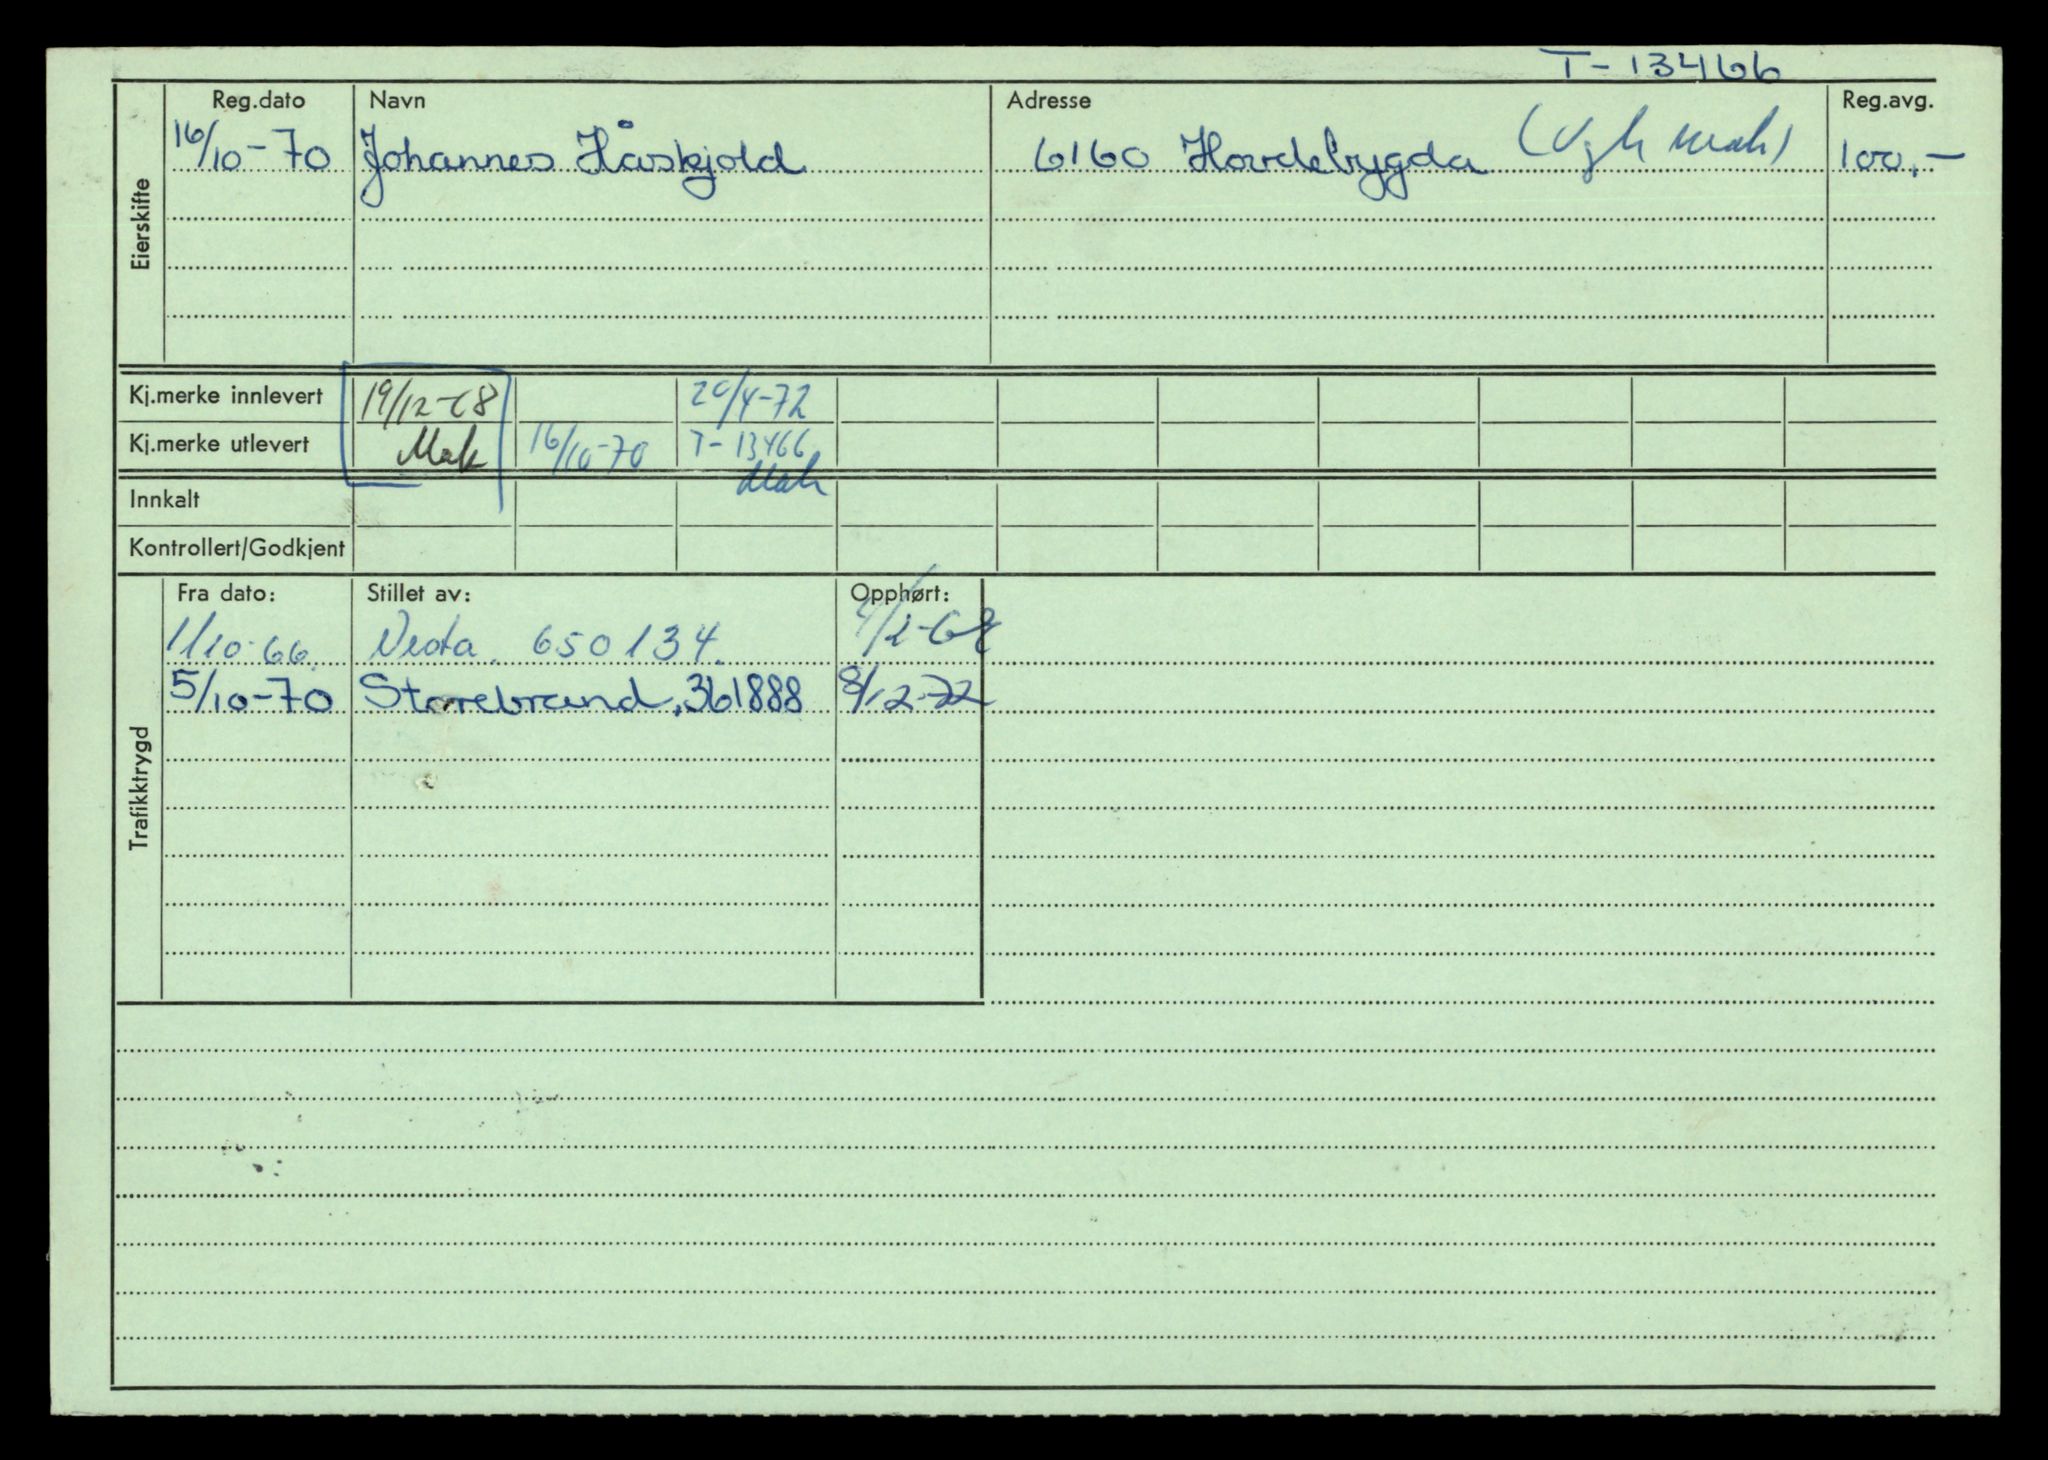 T-13466
Eierskifte
Reg.dato Navn Adresse Reg.avg.
16/10-70 Johannes Håskjold 6160 Hovdebygda 100,-
Kj.merke innlevert 19/12-68 20/4-72
Kj.merke utlevert Mak 16/10-70 T-13466
Mak
Innkalt
Kontrollert/Godkjent
Trafikktrygd
Fra dato: Stillet av: Opphørt:
1/10-66. Vesta. 650134.
5/10-70 Storebrand, 361888 8/12-72